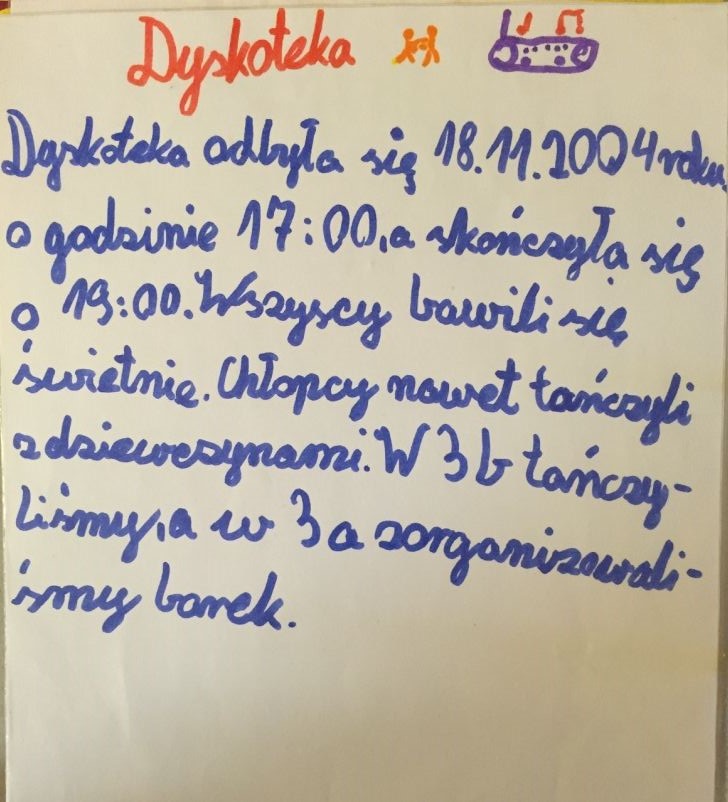 Dyskoteka
Dyskoteka odbyła się 18.11.2004 roku
o godzinie 17:00, a skończyła się
o 19:00. Wszyscy bawili się
świetnie. Chłopcy nawet tańczyli
z dziewczynami. W 3 b tańczy-
liśmy, a w 3 a zorganizowali-
śmy barek.